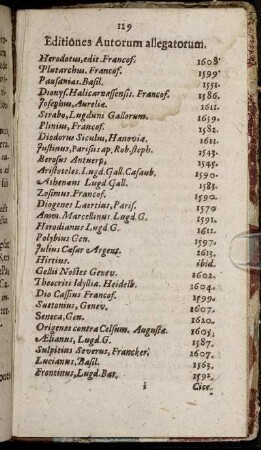 129
Editiones Autorum allegatorum.
Herodotus, edit. Francof. 1608.
Plutarchus. Francof. 1599.
Pausanias. Basil. 1551.
Dionys. Halicarnassensis. Francof. 1586.
Josephus, Aurelia. 1611.
Strabo, Lugduni Gallorum. 1659.
Plinius, Francof. 1582.
Diodorus Siculus, Hanoviæ. 1611.
Justinus, Parisiis ap. Rob. steph. 1543.
Berosus Antuerp, 1545.
Aristoteles. Lugd. Gall. Casaub. 1590.
Athenæus Lugd. Gall. 1583.
Zosimus. Francof. 1590.
Diogenes Laertius, Paris. 1570
Amm. Marcellinus Lugd. G. 1591.
Herodianus Lugd. G. 1611.
Polybius Gen. 1597.
Julius Cæsar Argent. 1613.
Hirtius. ibid.
Gellii Noctes Genev. 1602.
Theocriti Idyllia. Heidelb. 1604.
Dio Cassius Francof. 1599.
Suetonius, Genev. 1607.
Seneca, Gen. 1620.
Origenes contra Celsum. Augustæ. 1605.
Ælianus, Lugd. G. 1587.
Sulpitius Severus, Francker. 1607.
Lucianus, Basil. 1563.
Frontinus, Lugd. Bat. 1592.
i Cice-